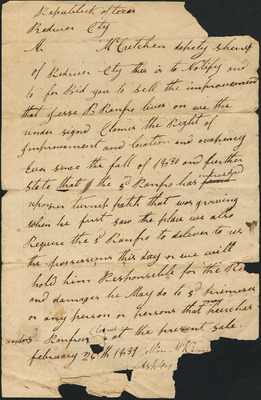 Republick of texas
Redriver Cty
M McCutchen deputy Sheriff
of Redriver Cty this is to Notify and
to for Bid you to sell the improvement
that Jesse B Renfro lives on we the
under signed Clames the Right of
Improvement and location and ocupancy
Ever since the fall of 1830 and further
State that the sd Renfro has
uponour turnip patch that was growing
when he first saw the place we also
Require the sd Renfro to deliver to us
the possessions this day or we will
hold him Responsible for the
and damages he May do to sd Premises
or any person or persons that may purchas
under sd Renfros Clame at the present Sale
february 26th 1839